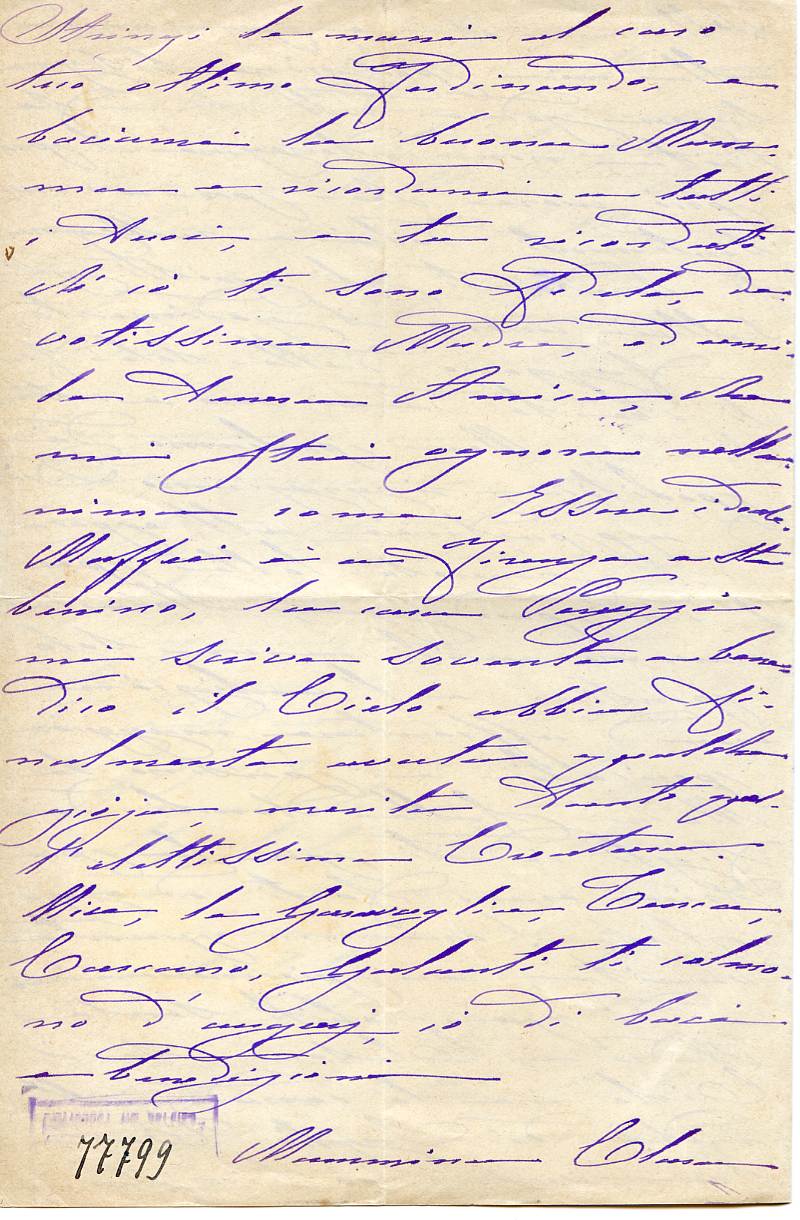 Stringi la mano al caro
tuo ottimo Ferdinando, e
baciami la buona Mam-
ma e ricordami a tutti
i tuoi, e tu ricordati
ch'io ti sono fedele, de-
votissima Madre, ed umi-
le tenera Amica, che
mi stai ognora nell'a-
nima come Essere ideale.
Maffei è a Firenze e sta
benino, la cara Peruzzi
mi scrive sovente e bene-
dico il Cielo abbia fi-
nalmente avuta qualche
gioja, merita tanto quel-
l'elettissima Creatura.
Mica, la Garavaglia, Tenca,
Carcano, Galanti ti colma-
no d'augurj, io di baci
e benedizioni
Mammina Clara
77799